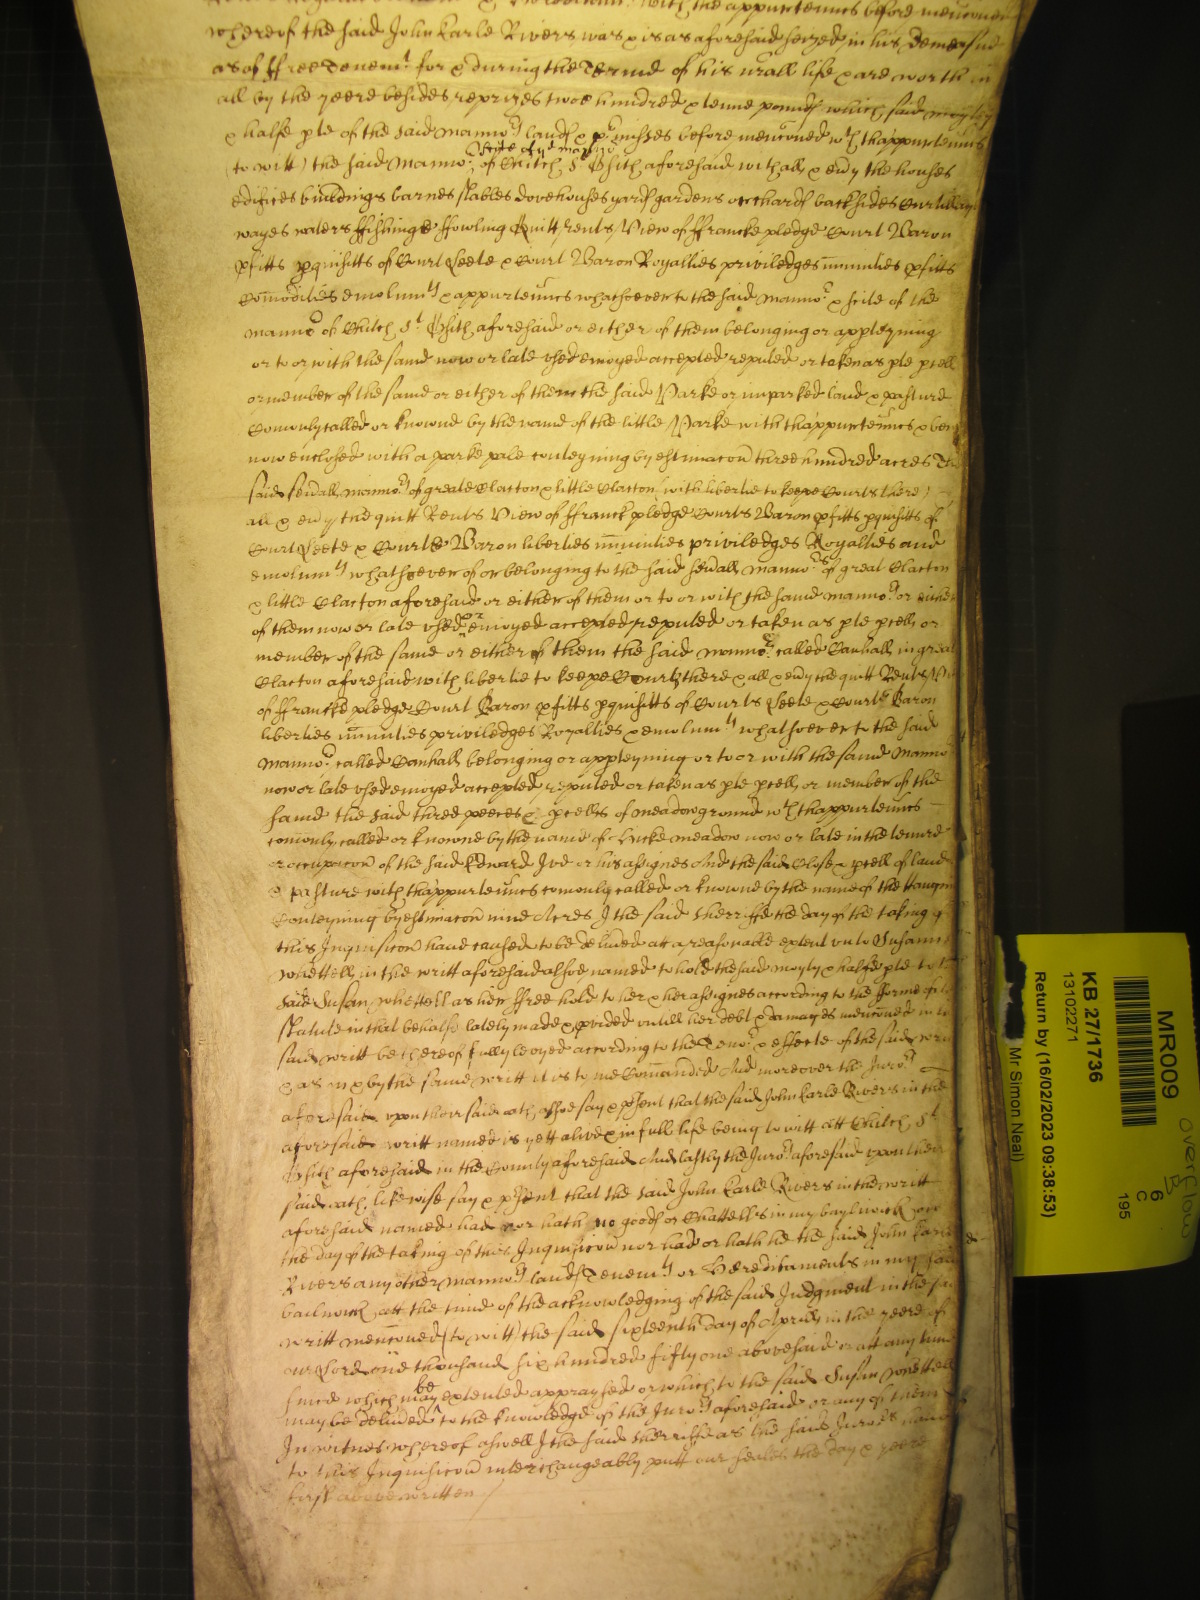 with the appurtennces before menconed
whereof the said John Earle Rivers was & is as aforesaid seized in his demeasne
as of ffree Tenemt for & during the Terme of his nrall life & are worth in
all by the yeere besides reprizes twoe hundred & tenne pounds which said moyty
& halfe pte of the said Manno:rs lands & pr:misses before menconed wth thappurtennes
(to witt) the said Manno:r & Scite of ye mannor of Chitch St Osith aforesaid with all & evry the houses
edifices buildings barnes stables dovehouses yards gardens orchards backsides Curtilages
wayes waters ffishinge ffowling Quitt rents View of ffrancke pledge Court Baron
pfitts pquisitts of Court Leete & Court Baron Royallties priviledges imunities pfitts
Comodities emolumts & appurtennces whatsoever to the said Manno:r & scite of the
manno:r of Chitch St Osith aforesaid or either of them belonging or appteyning
or to or with the same now or late vsed enioyed accepted reputed or taken as pte pcell
or member of the same or either of them the said Parke or imparked land & pasture
Comonly called or knowne by the name of the little Parke with thappurtennces & being
now enclosed with a parke pale conteyning by estimacon three hundred acres The
said sevrall manno:rs of greate Clacton & little Clacton (with libertie to keepe Courts there)
all & evry the quitt Rents View of ffranck pledge Courts Baron pfitts pquisitts of
Court Leete & Courte Baron liberties imunities priviledges Royallties and
emolumts whatsoever of or belonging to the said sevrall manno:rs of great Clacton
& little Clacton aforesaid or either of them or to or with the same manno:rs or either
of them now or late vsed or enioyed accepted reputed or taken as pte pcell or
member of the same or either of them the said manno:r called Canhall in great
Clacton aforesaid with libertie to keepe Courts there & all & evry the quitt Rents View
of ffrancke pledge Court Baron pfitts pquisitts of Courts Leete & Courte Baron
liberties imunities priviledges Royallties & emolumts whatsoever to the said
Manno:r called Canhall belonging or appteyning or to or with the same Manno:r
now or late vsed enioyed accepted reputed or taken as pte pcell or member of the
same the said three peeces & pcells of meadow ground wth thappurtennces
comonly called or knowne by the name of meadow now or late in the tenure
or occupacon of the said Edward Ive or his assignes And the said Close & pcell of land
& pasture with thappurtennces comonly called or knowne by the name of the
Conteyning by estimacon nine Acres I the said Sherriffe the day of the taking of
this Inquisicon have caused to be delivred att a reasonable extent vnto Susann
Whettell in the writt aforesaid alsoe named to hold the said moyty & halfe pte to the
said Susan Whettell as her ffree hold to her & her assignes according to the fforme of the
statute in that behalfe lately made & pvided vntill her debt & damages menconed in the
said writt be thereof fully levyed according to the Teno:r & effecte of the said writt
& as in & by the same writt it is to me Comanded And moreover the Juro:rs
aforesaid vpon their said oath alsoe say & psent that the said John Earle Rivers in the
aforesaid writt named is yett alive & in full life being to witt att Chitch St
Osith aforesaid in the County aforesaid And lastly the Juro:rs aforesaid vpon their
said oath likewise say & psent that the said John Earle Rivers in the writt
aforesaid named had nor hath no goods or Chattells in my baylwick
the day of the taking of this Inquisicon nor had or hath he the said John Earle
Rivers any other manno:rs lands Tenemts or Hereditaments in my said
bailwick att the time of the acknowledging of the said Judgment in the said
writt menconed (to witt) the said sixteenth day of Aprill in the yeere of
our Lord one thousand six hundred fifty one abovesaid or att any time
since which may be extented appraysed or which to the said Susan Whettell
may be delivred to the knowledge of the Juro:rs aforesaid or any of them
In witnes whereof aswell I the said Sherriffe as the said Juro:rs have
to this Inquisicon interchangeably putt our seales the day & yeere
first above written
MR009
KB 27/1736
13102271
Return by (16/02/2023 09:38:53)
Mr Simon Neal)
6
C
195
Overflow